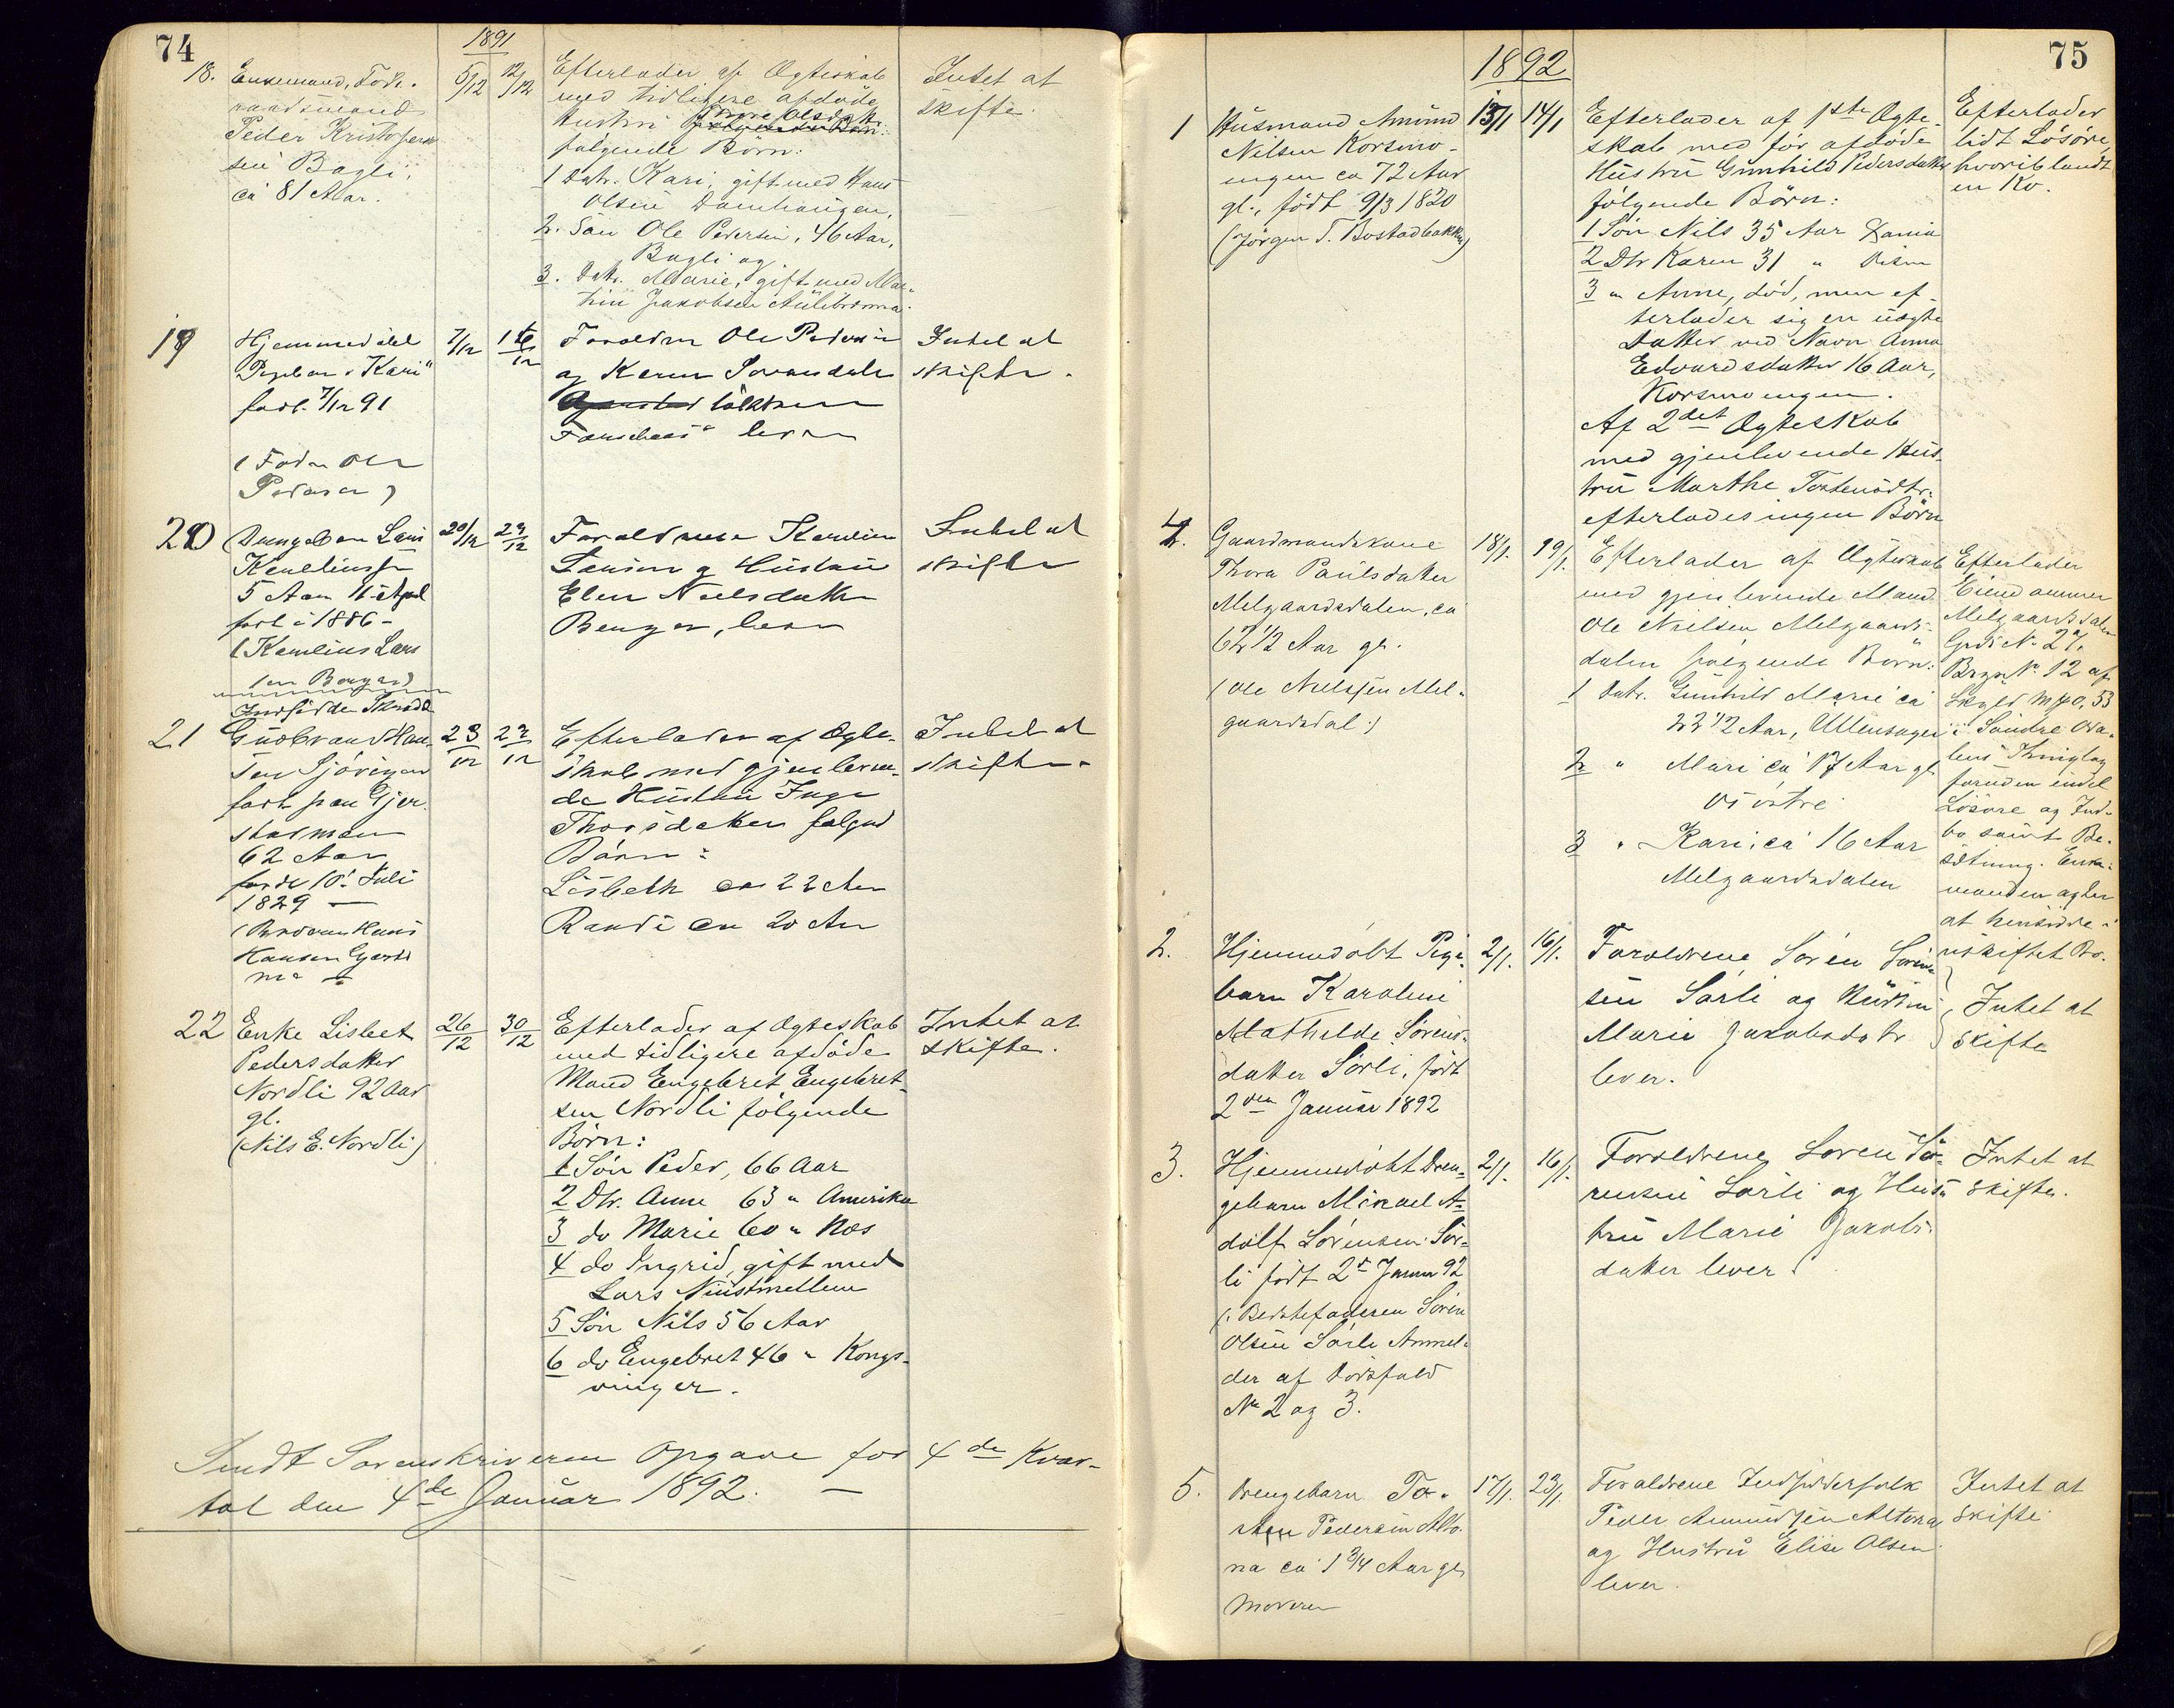 74
1891
18. Enkemand, Fode.
raadsmand
Peder Kristofer
sen Bagli,
ca 81 Aar.
5/12 12/12
Efterlader af Ægteskab
med tidligere afdøde
Hustru
følgende Børn:
1 Datr. Kari, gift med Hans
Olsen Damhaugen,
2. Søn Ole Pedersen, 46 Aar,
Bagli og
3. Datr. Marie, gift med Mar-
thin Jakobsen
Intet at
skifte.
19
Hjemmedøbt
Pigebarn "Kari"
født 7/12 91
(Fader Ole
Pedersen)
7/12 16/12
Forældrene Ole Pedersen
og Karen
lever
Intet at
skifte.
20
Drengebarn Lars
5 Aar 11 April
født i 1886 -
(Kornelius Lars
sen Benger)
20/12 22/12
Forældrene
Larsen og Hustru
Elen Nielsdatter
Benger, lever
Intet at
skifte
21
Gudbrand Han-
sen
født paa Gjer-
stadmoen
62 Aar
født 10. Juli
1829 —
(Broderen Hans
Hansen
23/12 22/12
Efterlader af Ægte-
skab med gjenleven-
de Hustru Inge
Thorsdatter følgend
Børn:
Lisbeth ca 22 Aar
Randi ca 20 Aar
Intet at
skifte.
22 Enke Lisbet
Pedersdatter
Nordli 92 Aar
gl.
(Nils E. Nordli)
26/12 30/12
Efterlader af Ægteskab
med tidligere afdøde
Mand Engebret Engebret-
sen Nordli følgende
Børn:
1 Søn Peder, 66 Aar
2 Dtr. Anne 63 " Amerika
3 do Marie 60 " Næs
4 do Ingrid, gift med
Lars
5 Søn Nils 56 Aar
6 do Engebret 46 " Kongs-
vinger.
Intet at
skifte.
Sendt Sorenskriveren Opgave for 4de Kvar-
tal den 4de Januar 1892. —
75
1892
1 Husmand Amund
Nilsen Korsmo-
engen ca 72 Aar
gl., født 9/3 1820
(Jørgen T. Bostadbakken)
13/1 14/1
Efterlader af 1ste Ægte-
skab med før afdøde
Hustru Gunhild Pedersdatter
følgende Børn:
1 Søn Nils 35 Aar
2 Dtr Karen 31 "
3 " Anne, død, men ef-
terlader sig en uægte
Datter ved Navn Anna
Edvardsdatter 16 Aar,
Korsmoengen.
Af 2det Ægteskab
med gjenlevende Hus-
tru Marthe Tostensdtr.
efterlades ingen Børn
Efterlader
lidt Løsøre,
hvoriblandt
en Ko.
4. Gaardmandskone
Thora Paulsdatter
Melgaardsdalen, ca
62 1/2 Aar gl.
(Ole Nielssen Mel-
gaardsdal.)
18/1. 19/1.
Efterlader af Ægteskab
med gjenlevende Mand
Ole Nielsen Melgaards-
dalen følgende Børn:
1 Datr. Gunhild Marie ca
22 1/2 Aar, Ullensager
2 " Mari ca 17 Aar gl.
3 " Kari, ca 16 Aar
Melgaardsdalen
Efterlader
Eiendommen
Melgaardsdalen
Grds No. 27,
Brgs No 12 af
Skyld M 0,53
i Søndre Oda-
lens Thinglag
foruden endel
Løsøre og Ind-
bo samt Be-
sætning. Enke-
manden agter
at hensidde i
uskiftet Bo.
2. Hjemmedøbt Pige-
barn Karoline
Mathilde Sørens-
datter Sørli, født
2den Januar 1892
2/1. 16/1.
Forældrene Søren Søren-
sen Sørli og Hustru
Marie Jakobsdatr
lever.
Intet at
skifte
3. Hjemmedøbt Dren-
gebarn Mikael A-
dolf Sørensen Sør-
li født 2d Januar 92
(: Bedstefaderen Søren
Olsen Sørli Anmel-
der af Dødsfald
No 2 og 3.
2/1. 16/1.
Forældrene Søren Sø-
rensen Sørli og Hus-
tru Marie Jakobs-
datter lever.
Intet at
skifte.
5. Drengebarn To-
sten Pedersen Alto-
na ca 1 3/4 Aar gl.
Moderen
17/1. 23/1.
Forældrene Indsidderfolk
Peder Amundsen Altona
og Hustru Elise Olsen
lever.
Intet at
skifte.